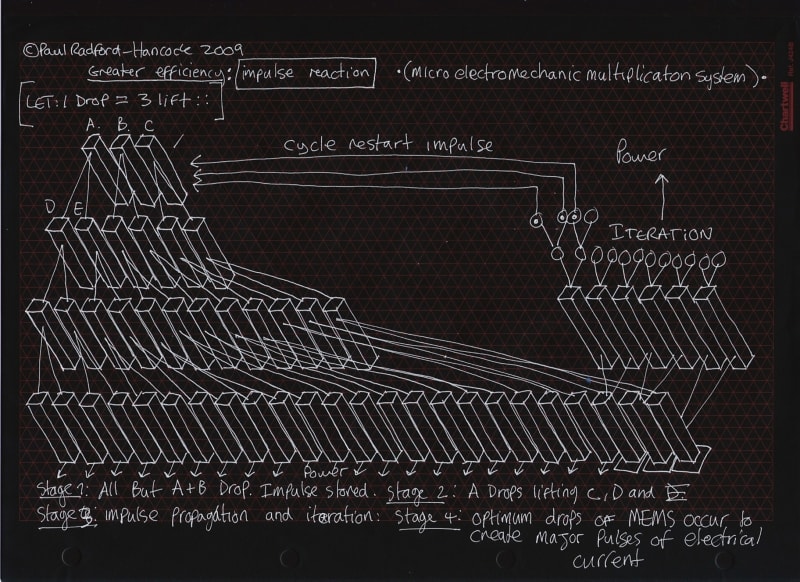 ©Paul Radford-Hancock 2009
Greater efficiency: impulse reaction • (micro electromechanic multiplicaton system) •
LET: 1 Drop = 3 lift ::
A. B. C
cycle restart impulse
Power
D E
ITERATION
Power
Stage 1: All But A+B Drop. Impulse stored. Stage 2: A Drops lifting C, D and E
Stage 3: impulse propagation and iteration: Stage 4: optimum drops of MEMS occur to
create major pulses of electrical
current
Chartwell